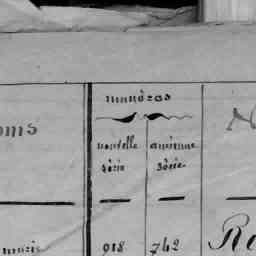 numéros
oms N
nouvelle ancienne
série série
marie 918 742 Ro